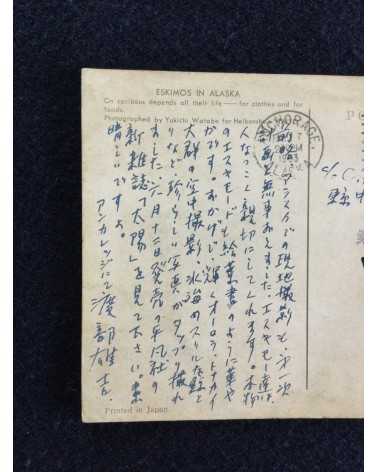 ESKIMOS IN ALASKA
On caribous depends all their life — for clothes and for
foods.
Photographed by Yukichi Watabe for Heibonsha
ANCHORAGE,
1963
P
c/o C.
アラスカでの現地撮影も、第一次
計画を無事おえました。エスキモー達は
人なつっこく親切にしてくれます。本物
のエスキモードも絵葉書のように華や
かです。おかげで、輝くオーロラ、トナカイ
大群の空中撮影、氷海のスリルな鯨と
りなど珍らしい写真がタップリ撮れ
ました。六月十二日発売の平凡社の
新雑誌「太陽」を見て下さい。素
晴しいですよ。
アンカレッジにて
渡部雄吉
Printed in Japan